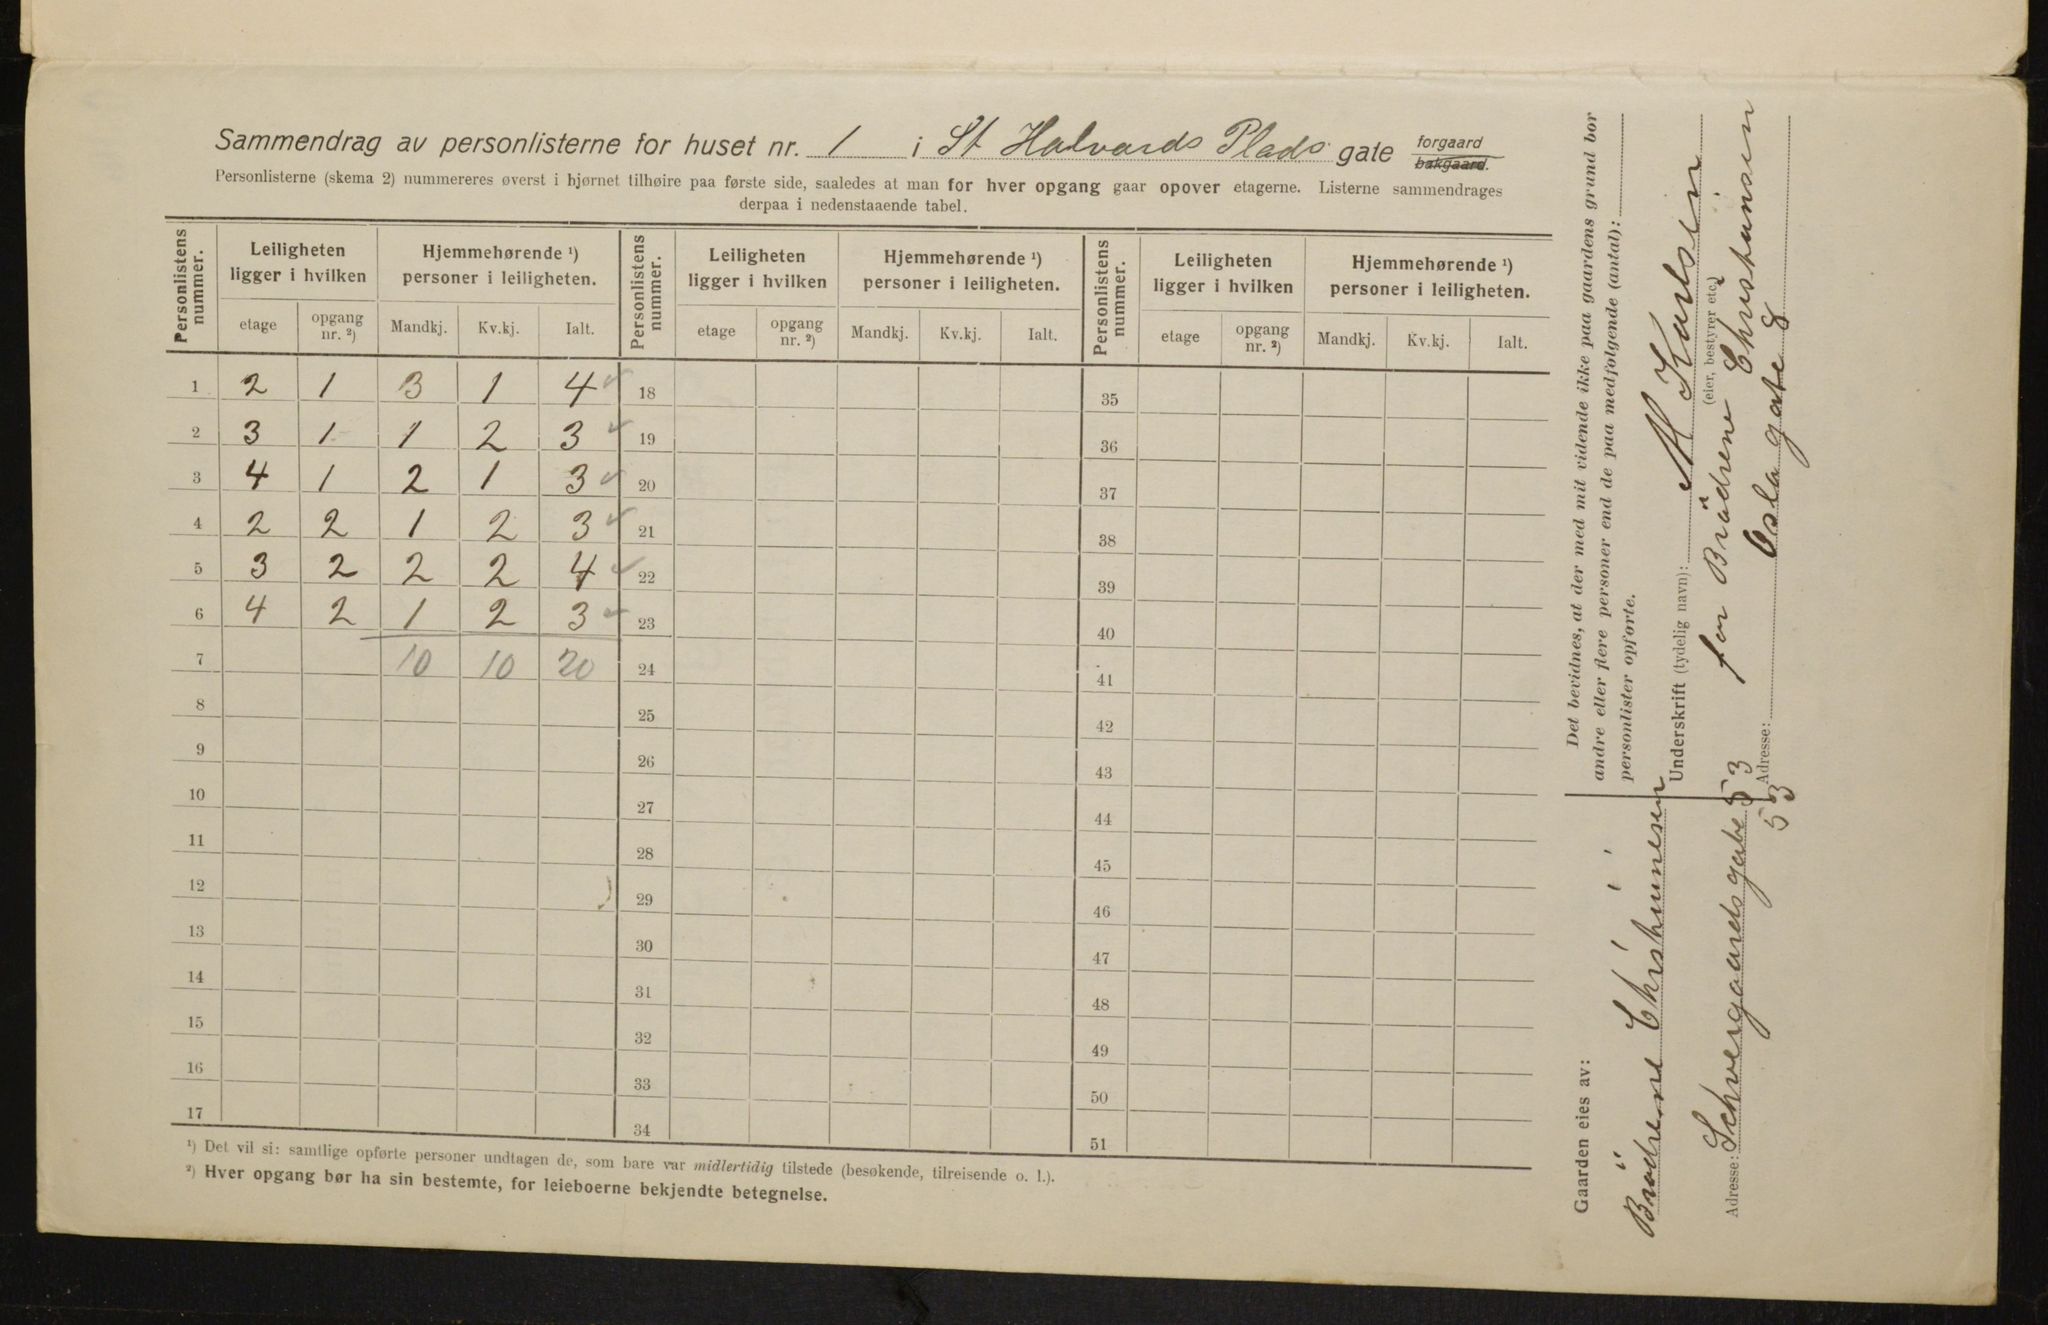 Sammendrag av personlisterne for huset nr. 1 i St Halvards Plads gate forgaard bakgaard.
Personlisterne (skema 2) nummereres øverst i hjørnet tilhøire paa første side, saaledes at man for hver opgang gaar opover etagerne. Listerne sammendrages
derpaa i nedenstaaende tabel.
Personlistens nummer. Leiligheten ligger i hvilken Hjemmehørende ¹) personer i leiligheten. Personlistens nummer. Leiligheten ligger i hvilken Hjemmehørende ¹) personer i leiligheten. Personlistens nummer. Leiligheten ligger i hvilken Hjemmehørende ¹) personer i leiligheten.
etage opgang nr. ²) Mandkj. Kv.kj. Ialt. etage opgang nr. ²) Mandkj. Kv.kj. Ialt. etage opgang nr. ²) Mandkj. Kv.kj. Ialt.
1 2 1 3 1 4 ✓ 18 35
2 3 1 1 2 3 ✓ 19 36
3 4 1 2 1 3 ✓ 20 37
4 2 2 1 2 3 ✓ 21 38
5 3 2 2 2 4 ✓ 22 39
6 4 2 1 2 3 ✓ 23 40
7 10 10 20 24 41
8 25 42
9 26 43
10 27 44
11 28 45
12 29 46
13 30 47
14 31 48
15 32 49
16 33 50
17 34 51
¹) Det vil si: samtlige opførte personer undtagen de, som bare var midlertidig tilstede (besøkende, tilreisende o. l.).
²) Hver opgang bør ha sin bestemte, for leieboerne bekjendte betegnelse.
Det bevidnes, at der med mit vidende ikke paa gaardens grund bor
andre eller flere personer end de paa medfølgende (antal):
personlister opførte.
Underskrift (tydelig navn): M Karlsen
(eier, bestyrer etc.)
for Brödrene Christiansen
Adresse: Oslo gate 8
Gaarden eies av:
Brödrene Christiansen
Adresse: Schweigaardsgate 53
53